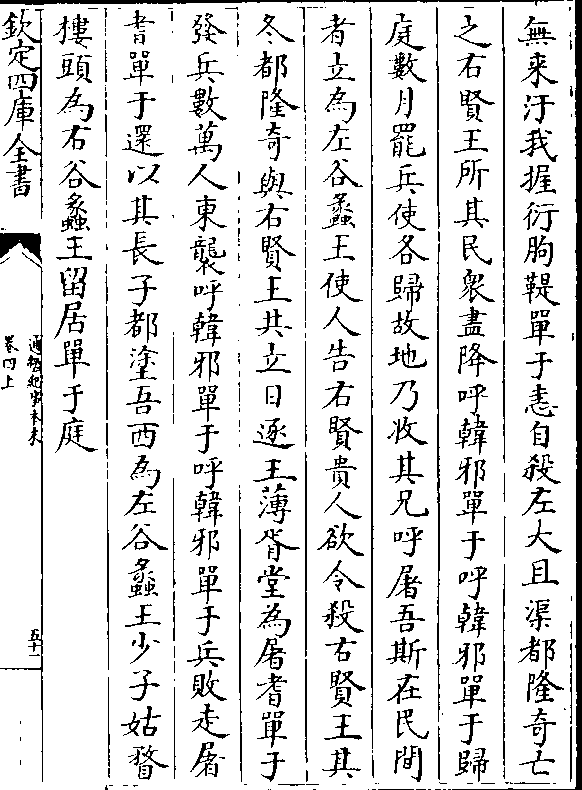 無来汙我握衍朐鞮單于恚自殺左大且渠都隆奇亡
之右賢王所其民衆盡降呼韓邪單于呼韓邪單于歸
庭數月罷兵使各歸故地乃收其兄呼屠吾斯在民間
者立為左谷蠡王使人告右賢貴人欲令殺右賢王其
冬都隆奇與右賢王共立日逐王薄胥堂為屠耆單于
發兵數萬人東襲呼韓邪單于呼韓邪單于兵敗走屠
耆單于還以其長子都塗吾西為左谷蠡王少子姑瞀
樓頭為右谷蠡王留居單于庭
欽定四庫全書
通鑑紀事本末
卷四上
五十一